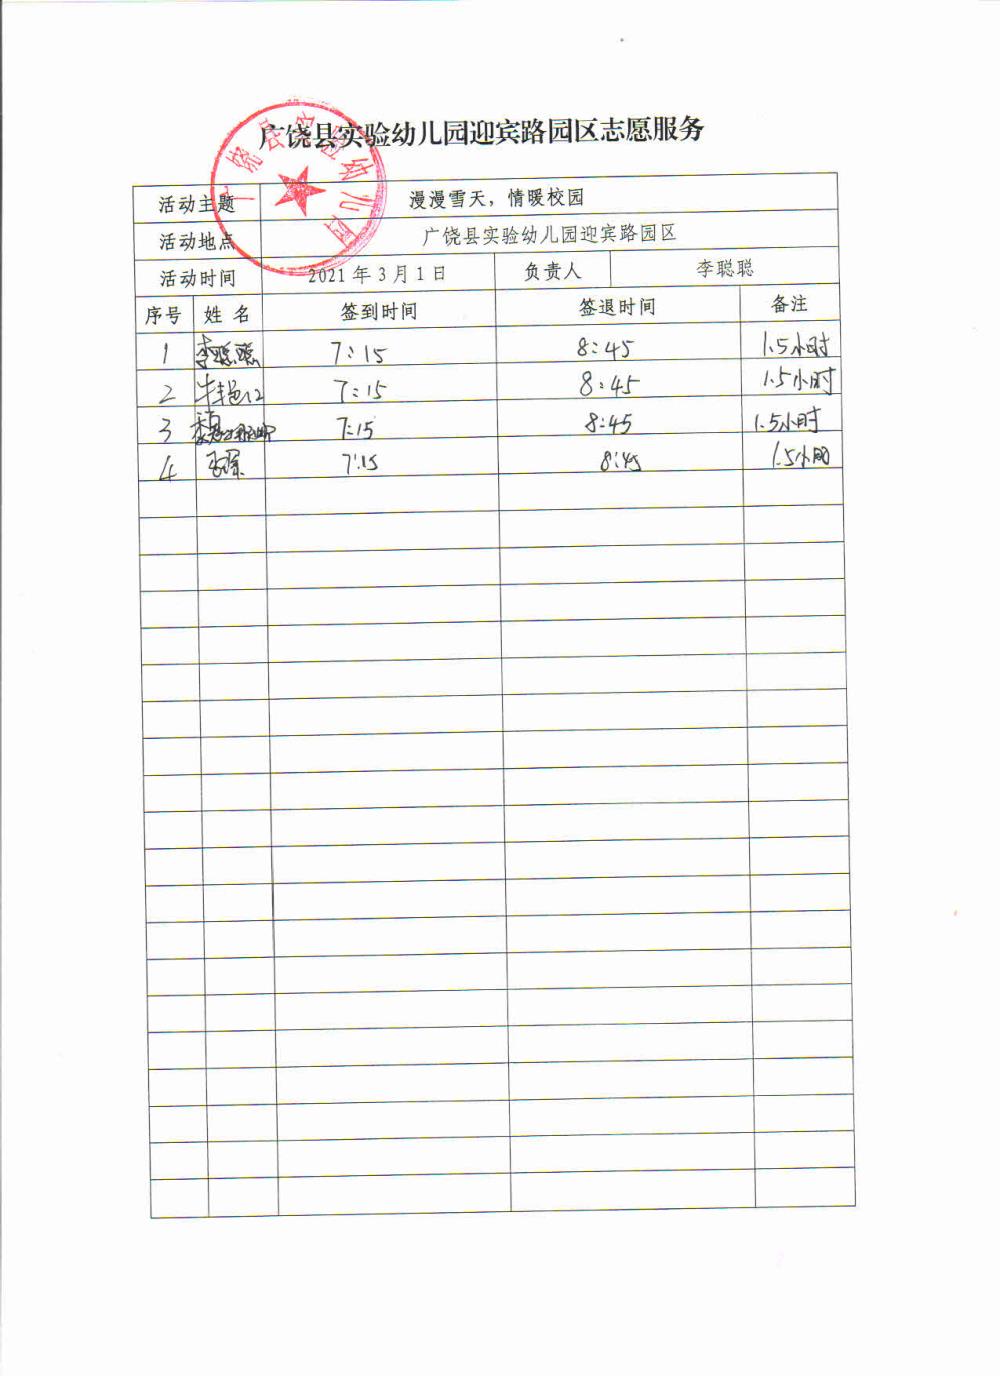 广饶县实验幼儿园迎宾路园区志愿服务
广饶县实验幼儿园
活动主题 漫漫雪天，情暖校园
活动地点 广饶县实验幼儿园迎宾路园区
活动时间 2021年3月1日 负责人 李聪聪
序号 姓名 签到时间 签退时间 备注
1 李聪聪 7:15 8:45 1.5小时
2 7:15 8:45 1.5小时
3 7:15 8:45 1.5小时
4 7:15 8:45 1.5小时